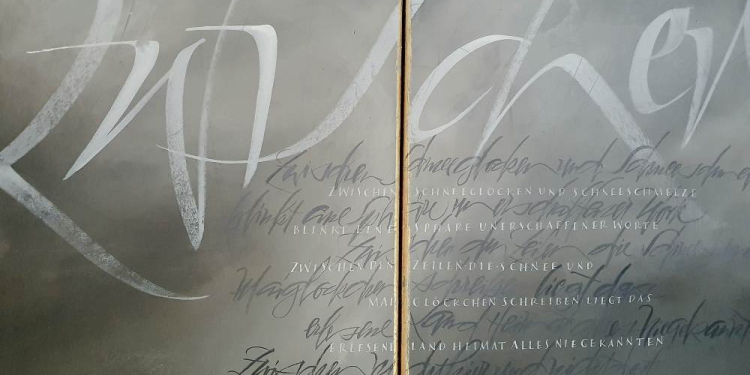 Zwischen
Zwischen Schneeglocken und Schneeschme
ZWISCHEN SCHNEEGLOCKEN UND SCHNEESCHMELZE
blinkt eine Sphäre unerschaffener Worte
BLINKT EINE SPHÄRE UNERSCHAFFENER WORTE
Zwischen den Zeilen die Schnee und
ZWISCHEN DEN ZEILEN DIE SCHNEE UND
Maiglöckchen schreiben liegt das
MAIGLÖCKCHEN SCHREIBEN LIEGT DAS
erlesene Land Heimat alles Niegekannt
ERLESENE LAND HEIMAT ALLES NIEGEKANNTEN
Zwischen